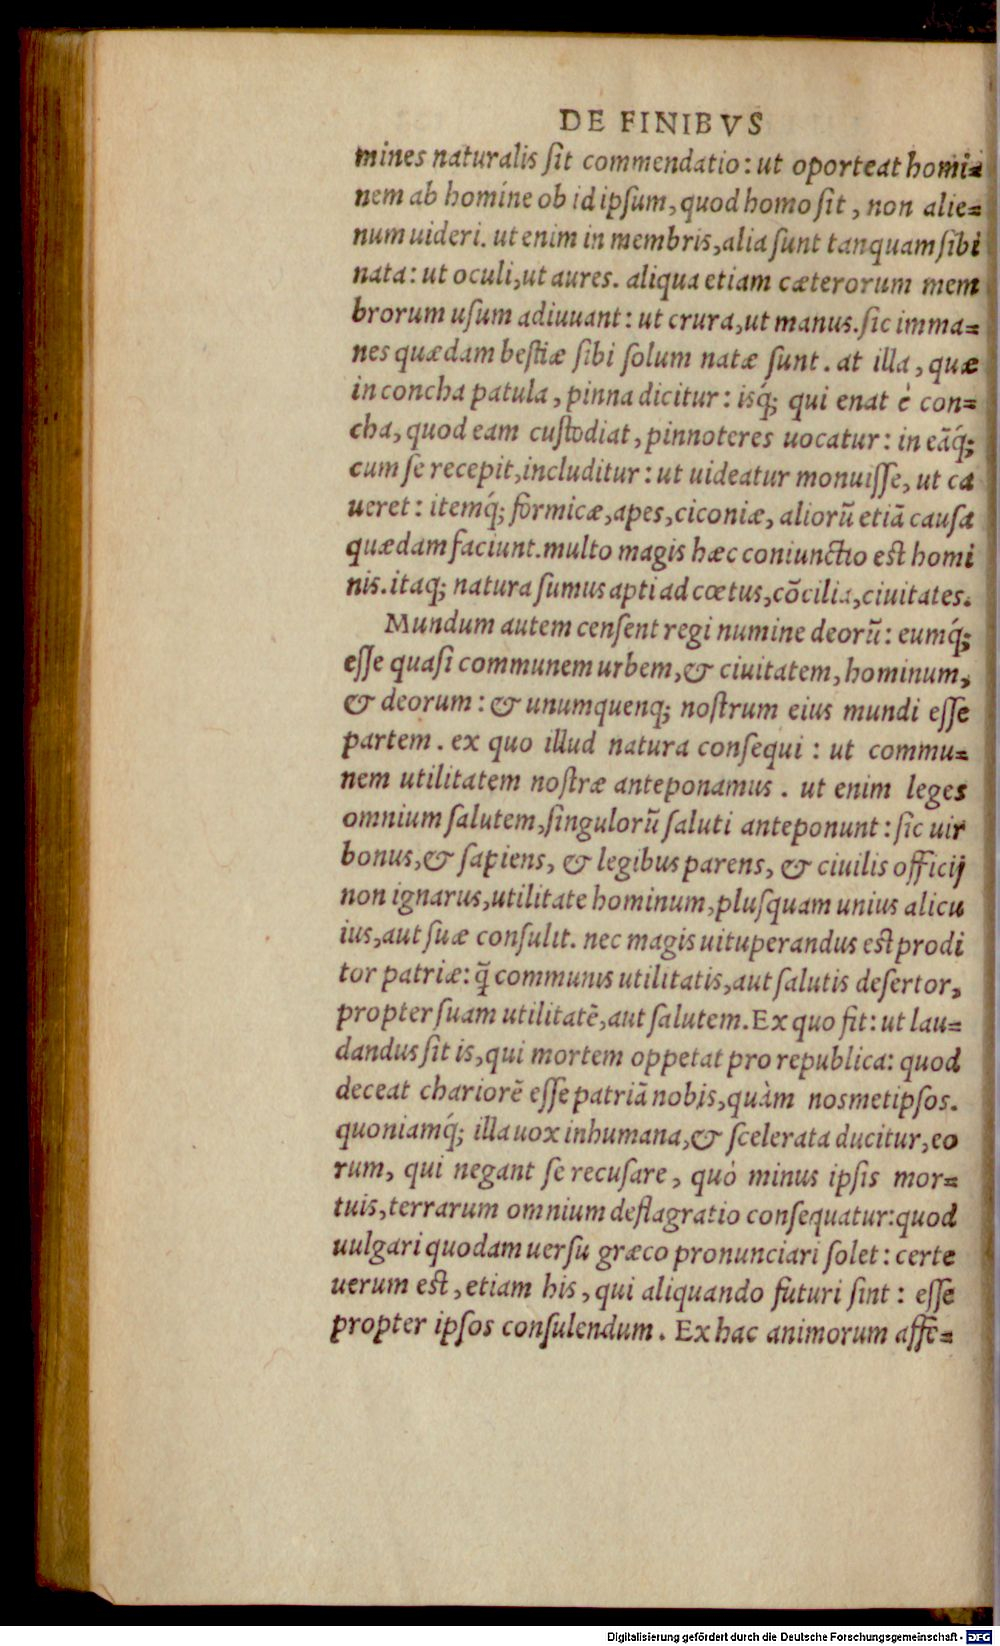 DE FINIBVS
mines naturalis ſit commendatio: ut oporteat homi=
nem ab homine ob id ipſum, quod homo ſit, non alie=
num uideri. ut enim in membris, alia ſunt tanquam ſibi
nata: ut oculi, ut aures. aliqua etiam cæterorum mem
brorum uſum adiuuant: ut crura, ut manus. ſic imma=
nes quædam beſtiæ ſibi ſolum natæ ſunt. at illa, quæ
in concha patula, pinna dicitur: isq́; qui enat è con=
cha, quod eam cuſtodiat, pinnoteres uocatur: in eãq́;
cum ſe recepit, includitur: ut uideatur monuiſſe, ut ca
ueret: itemq́; formicæ, apes, ciconiæ, aliorũ etiã cauſa
quædam faciunt. multo magis hæc coniunctio eſt homi
nis. itaq; natura ſumus apti ad cœtus, cõcilia, ciuitates.
Mundum autem cenſent regi numine deorũ: eumq́;
eſſe quaſi communem urbem, & ciuitatem, hominum,
& deorum: & unumquenq; noſtrum eius mundi eſſe
partem. ex quo illud natura conſequi: ut commu=
nem utilitatem noſtræ anteponamus. ut enim leges
omnium ſalutem, ſingulorũ ſaluti anteponunt: ſic uir
bonus, & ſapiens, & legibus parens, & ciuilis officij
non ignarus, utilitate hominum, pluſquam unius alicu
ius, aut ſuæ conſulit. nec magis uituperandus eſt prodi
tor patriæ: q̃ communis utilitatis, aut ſalutis deſertor,
propter ſuam utilitatẽ, aut ſalutem. Ex quo fit: ut lau=
dandus ſit is, qui mortem oppetat pro republica: quod
deceat chariorẽ eſſe patriã nobis, quàm nosmetipſos.
quoniamq́; illa uox inhumana, & ſcelerata ducitur, eo
rum, qui negant ſe recuſare, quò minus ipſis mor=
tuis, terrarum omnium deflagratio conſequatur: quod
uulgari quodam uerſu græco pronunciari ſolet: certe
uerum eſt, etiam his, qui aliquando futuri ſint: eſſe
propter ipſos conſulendum. Ex hac animorum affe=
Digitalisierung gefördert durch die Deutsche Forschungsgemeinschaft - DFG